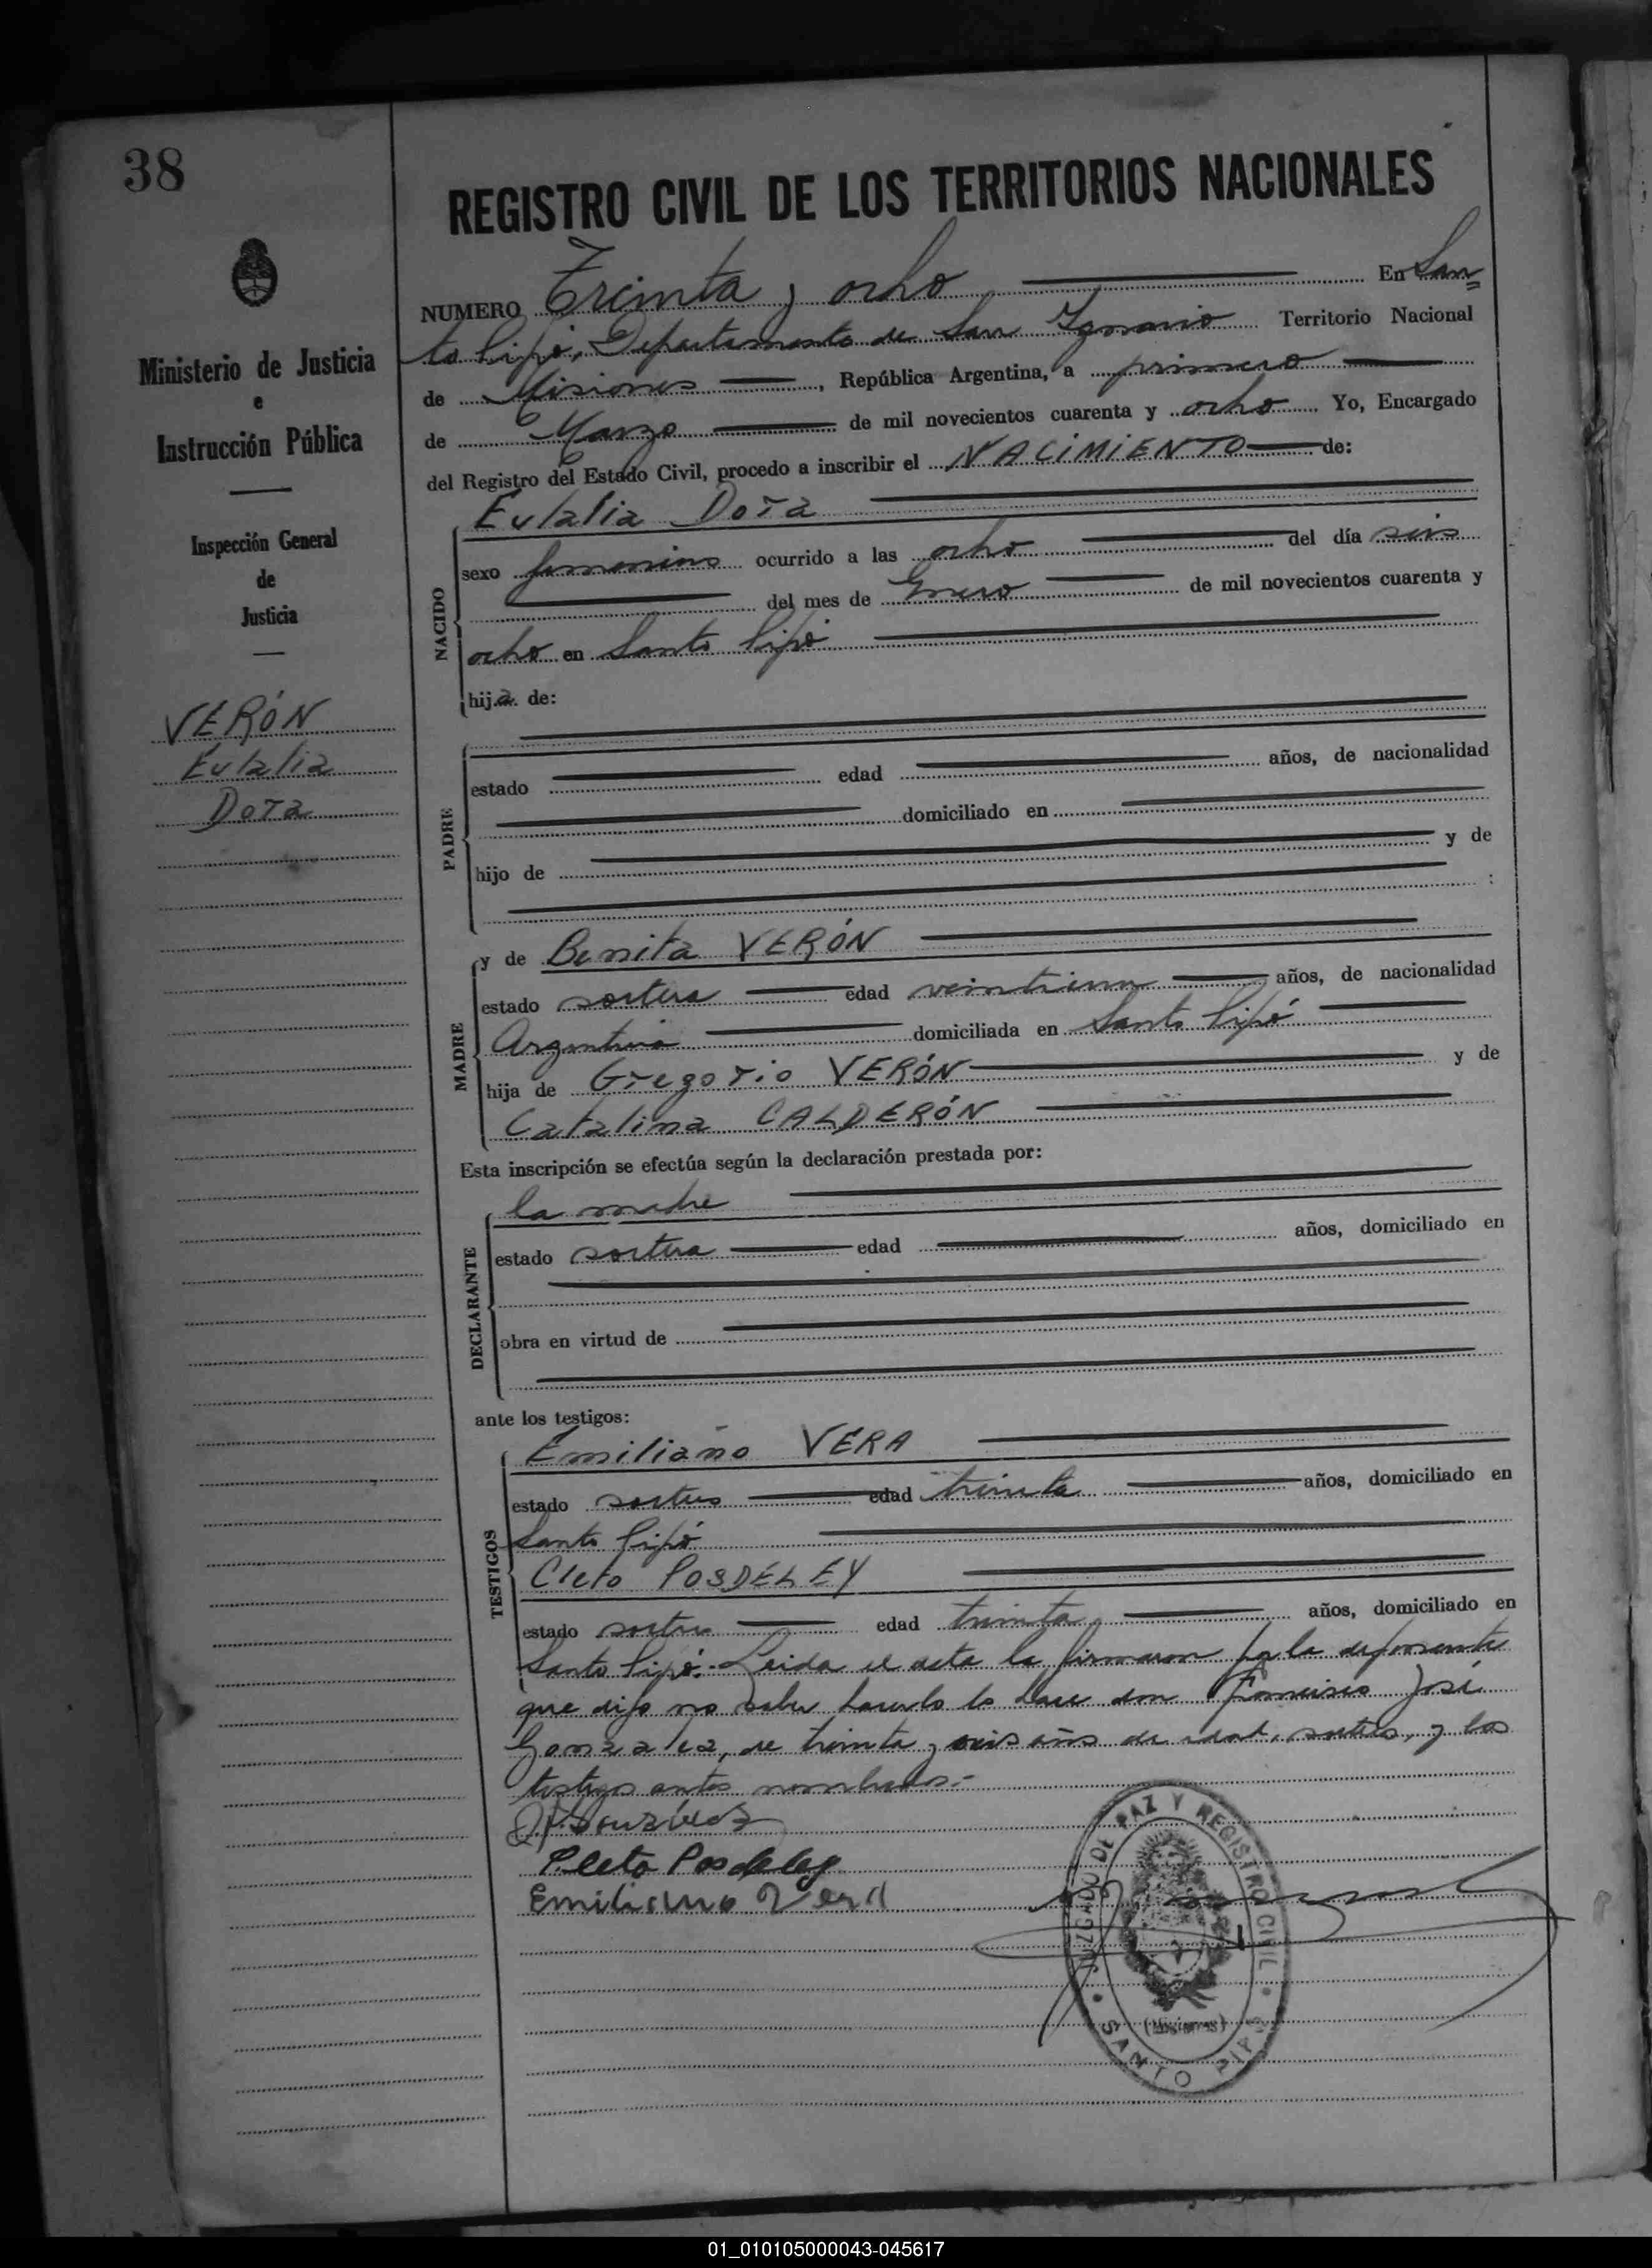 38
REGISTRO CIVIL DE LOS TERRITORIOS NACIONALES
NUMERO Treinta y ocho En San=
to Pipó, Departamento de San Ignacio Territorio Nacional
de Misiones, República Argentina, a primero
de Marzo de mil novecientos cuarenta y ocho Yo, Encargado
del Registro del Estado Civil, procedo a inscribir el NACIMIENTO de:
Ministerio de Justicia
e
Instrucción Pública
Inspección General
de
Justicia
VERÓN
Eulalia
Dora
NACIDO
Eulalia Dora
sexo femenino ocurrido a las ocho del día seis
del mes de Enero de mil novecientos cuarenta y
ocho en Santo Pipó
hija de:
PADRE
estado edad años, de nacionalidad
domiciliado en
hijo de y de
:
MADRE
y de Benita VERÓN
estado soltera edad veintiun años, de nacionalidad
Argentina domiciliada en Santo Pipó
hija de Gregorio VERÓN y de
Catalina CALDERÓN
Esta inscripción se efectúa según la declaración prestada por:
DECLARANTE
la madre
estado soltera edad años, domiciliado en
obra en virtud de
ante los testigos:
TESTIGOS
Emiliano VERA
estado soltero edad treinta años, domiciliado en
Santo Pipó
Cleto POSDELEY
estado soltero edad treinta años, domiciliado en
Santo Pipó.- Leida el acta la firmaron por la deponente
que dijo no saber hacerlo lo hace don Francisco José
Gonzalez, de treinta y seis años de edad, soltero, y los
testigos antes nombrados.-
Gonzalez
Cleto Posdeley
Emiliano Vera
JUZGADO DE PAZ Y REGISTRO CIVIL
(Misiones)
SANTO PIPÓ
01_010105000043-045617